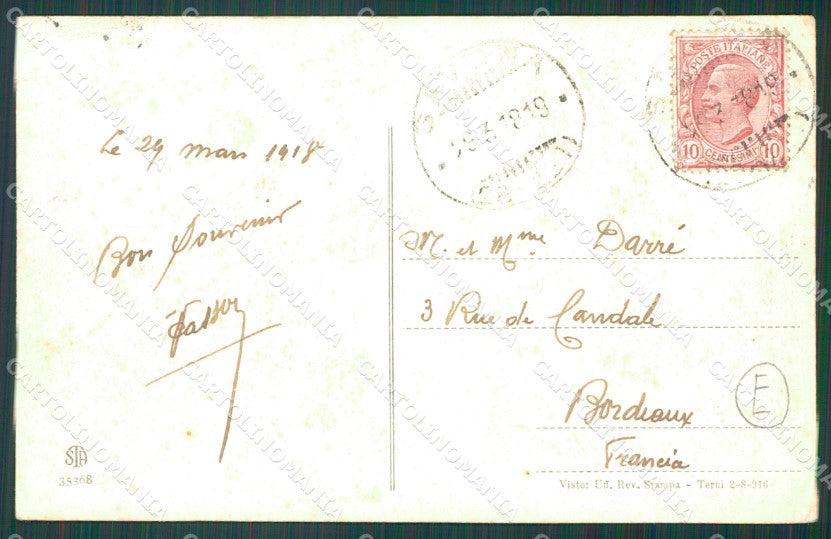 POSTE ITALIANE
10 CENTESIMI 10
Le 29 mars 1918
Bon Souvenir
M. et Mme Darré
3 Rue de Candale
Bordeaux
Francia
E
STA
35368
Visto: Uff. Rev. Stampa - Terni 2-8-916
CARTOLINOMANIA